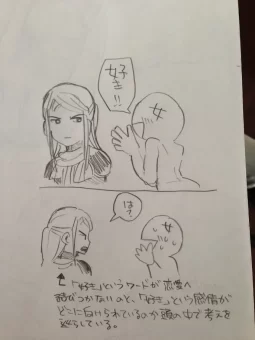 好き!!
女
は?
女
↑「好き」というワードが恋愛へ
結びつかないのと、「好き」という感情が
どこに向けられているのか頭の中で考えを
巡らしている。